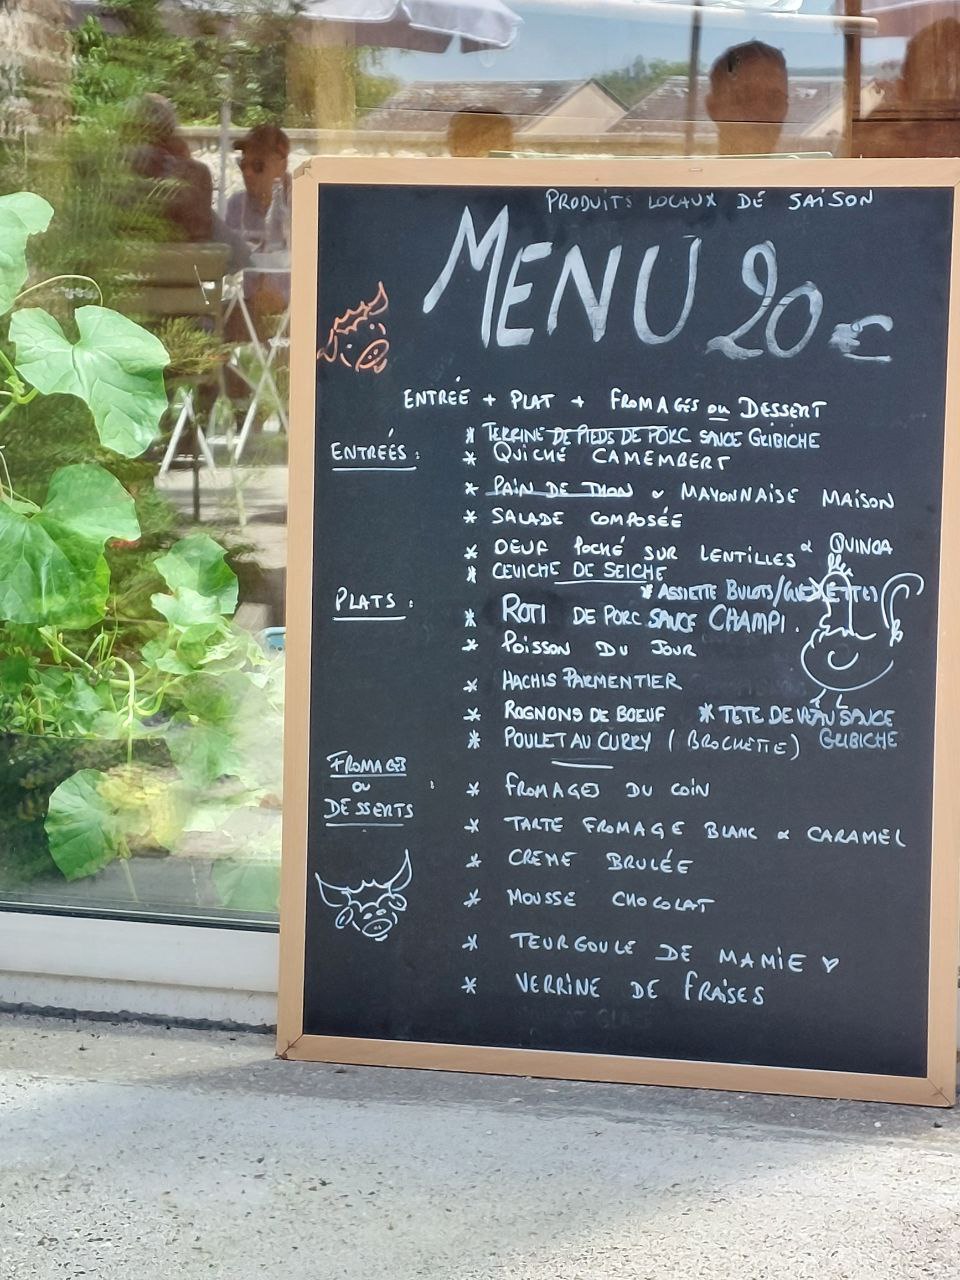 PRODUITS LOCAUX DE SAISON
MENU 20€
ENTRÉE + PLAT + FROMAGES ou DESSERT
ENTRÉES :
* TERRINE DE PIEDS DE PORC SAUCE GRIBICHE
* QUICHE CAMEMBERT
* PAIN DE THON & MAYONNAISE MAISON
* SALADE COMPOSÉE
* OEUF POCHÉ SUR LENTILLES & QUINOA
* CEVICHE DE SEICHE
* ASSIETTE BULOTS/
PLATS :
* ROTI DE PORC SAUCE CHAMPI.
* POISSON DU JOUR
* HACHIS PARMENTIER
* ROGNONS DE BOEUF * TETE DE VEAU SAUCE GRIBICHE
* POULET AU CURRY (BROCHETTE)
FROMAGES
OU
DESSERTS :
* FROMAGES DU COIN
* TARTE FROMAGE BLANC & CARAMEL
* CREME BRULÉE
* MOUSSE CHOCOLAT
* TEURGOULE DE MAMIE ♥
* VERRINE DE FRAISES